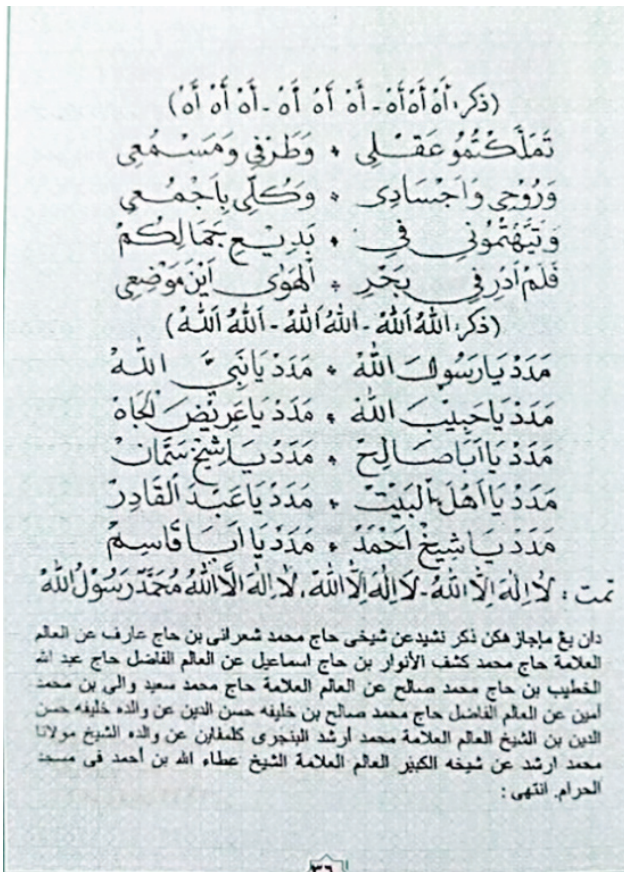 (ذكر: أَهْ أَهْ أَهْ - أَهْ أَهْ أَهْ - أَهْ أَهْ أَهْ)
تَمَلَّكْتُمُو عَقْلِى * وَطَرْفِي وَمَسْمُعِى
وَرُوْحِى وَاَجْسَادِى * وَكُلِّى بِاَجْمُعِى
وَتَيَّهْتُمُونِي فِي * بَدِيْعِ جَمَالِكُمْ
فَلَمْ اَدْرِ فِي بَحْرِ * الْهَوٰى اَيْنَ مَوْضِعِى
(ذكر: اَللهُ اَللهُ - اَللهُ اَللهُ - اَللهُ اَللهُ)
مَدَدْ يَا رَسُوْلَ اللهْ * مَدَدْ يَا نَبِيَّ اللهْ
مَدَدْ يَا حَبِيْبَ اللهْ * مَدَدْ يَا عَرِيْضَ الْجَاهْ
مَدَدْ يَا اَبَا صَالِحْ * مَدَدْ يَا شَيْخْ سَمَّانْ
مَدَدْ يَا اَهْلَ الْبَيْتْ * مَدَدْ يَا عَبْدَ الْقَادِرْ
مَدَدْ يَا شَيْخْ اَحْمَدْ * مَدَدْ يَا اَبَا قَاسِمْ
تمت : لَا اِلٰهَ اِلَّا اللهُ - لَا اِلٰهَ اِلَّا اللهُ، لَا اِلٰهَ اِلَّا اللهُ مُحَمَّدٌ رَسُوْلُ اللهْ
دان يڠ مڠإجازهكن ذكر نشيد عن شيخى حاج محمد شعرانى بن حاج عارف عن العالم
العلامة حاج محمد كشف الأنوار بن حاج اسماعيل عن العالم الفاضل حاج عبد الله
الخطيب بن حاج محمد صالح عن العالم العلامة حاج محمد سعيد والى بن محمد
أمين عن العالم الفاضل حاج محمد صالح بن خليفه حسن الدين عن والده خليفه حسن
الدين بن الشيخ العالم العلامة محمد أرشد البنجرى كلمفاين عن والده الشيخ مولانا
محمد ارشد عن شيخه الكبير العالم العلامة الشيخ عطاء الله بن أحمد فى مسجد
الحرام. انتهى :
٣٦